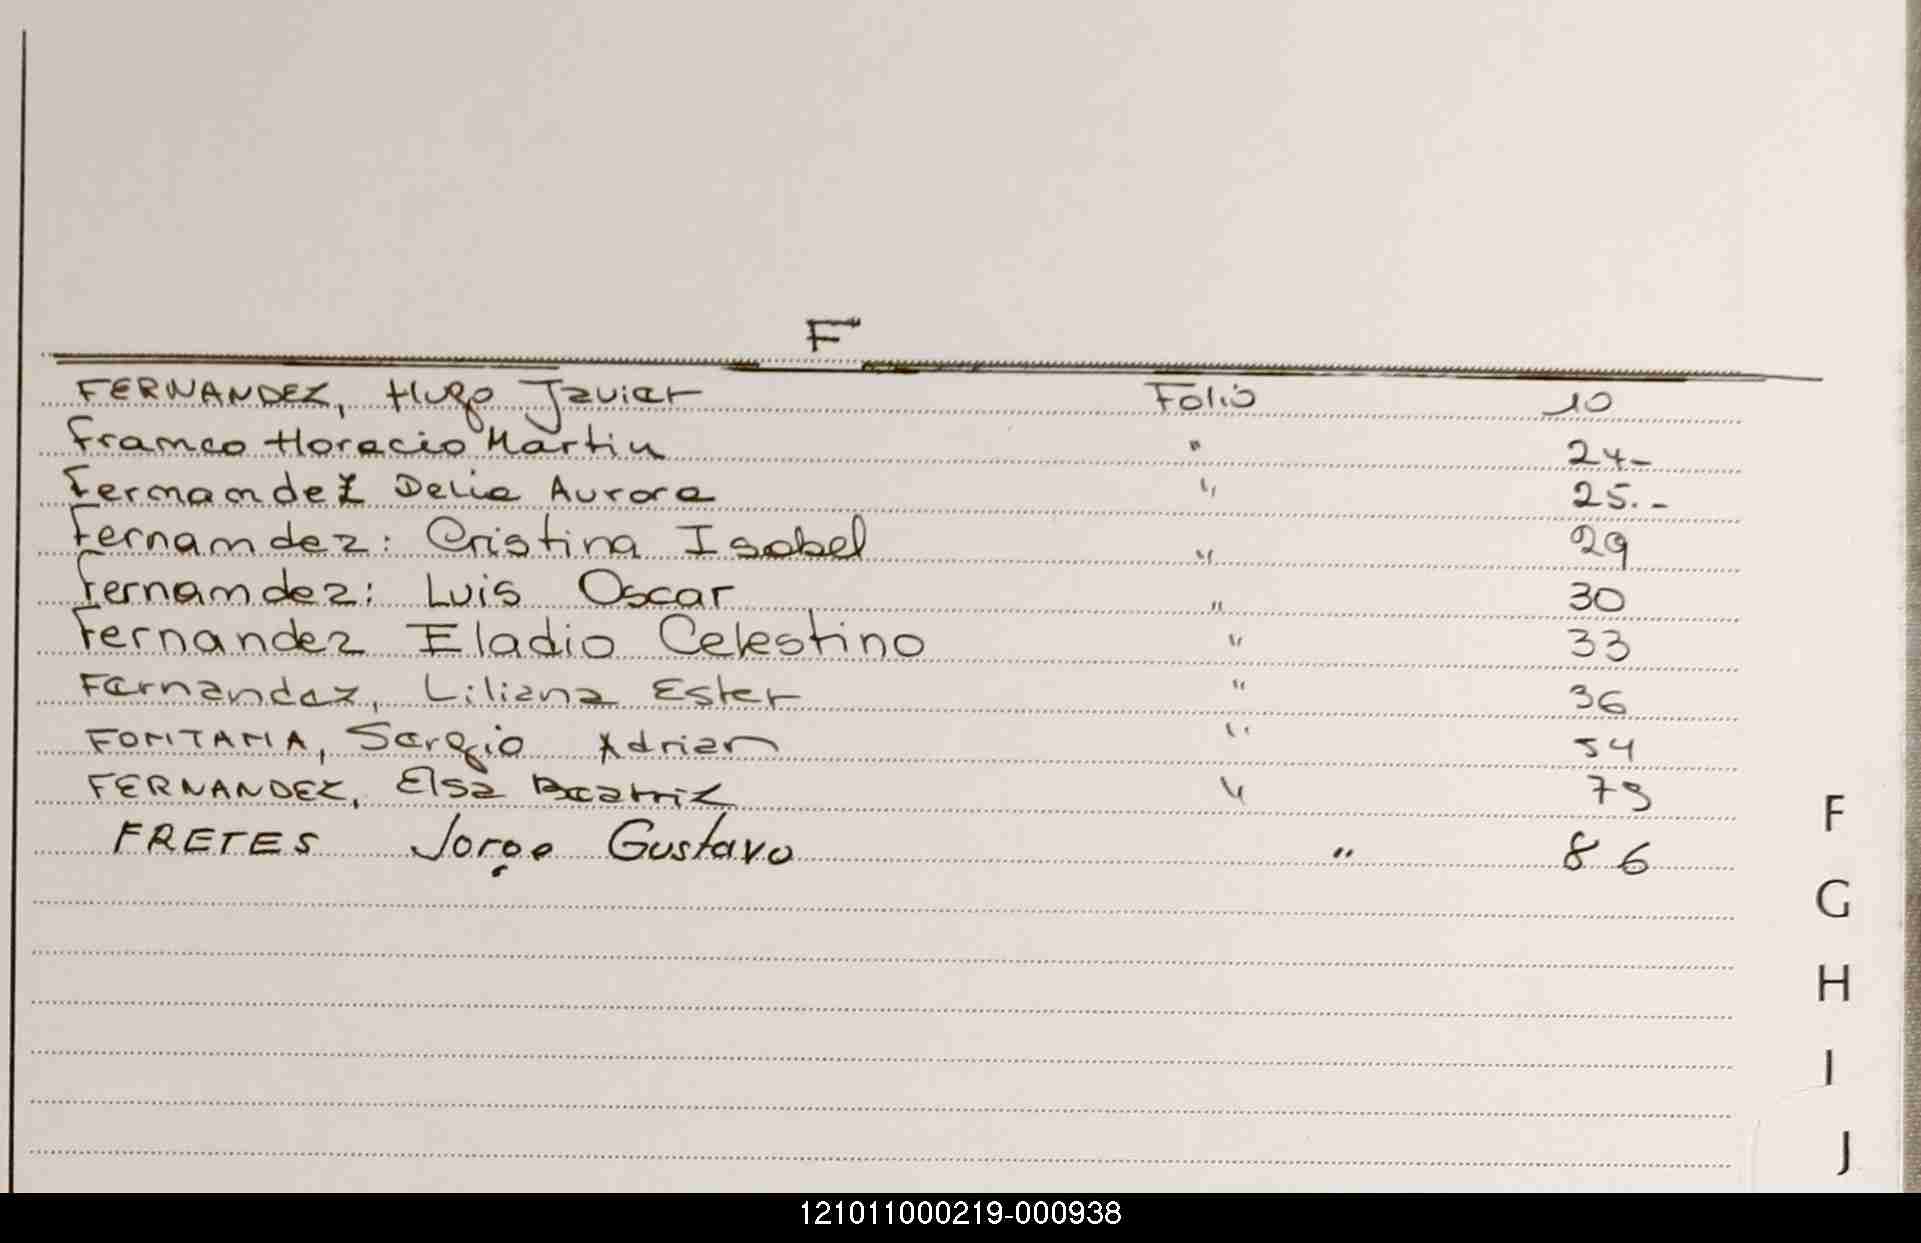 F
FERNANDEZ, Hugo Javier Folio 10
Franco Horacio Martin " 24-
Fernandez Delia Aurora " 25.-
Fernandez: Cristina Isabel " 29
Fernandez: Luis Oscar " 30
Fernandez Eladio Celestino " 33
Fernandez, Liliana Ester " 36
FONTANA, Sergio Adrian " 54
FERNANDEZ, Elsa Beatriz "
FRETES Jorge Gustavo " 86
F
G
H
I
J
121011000219-000938